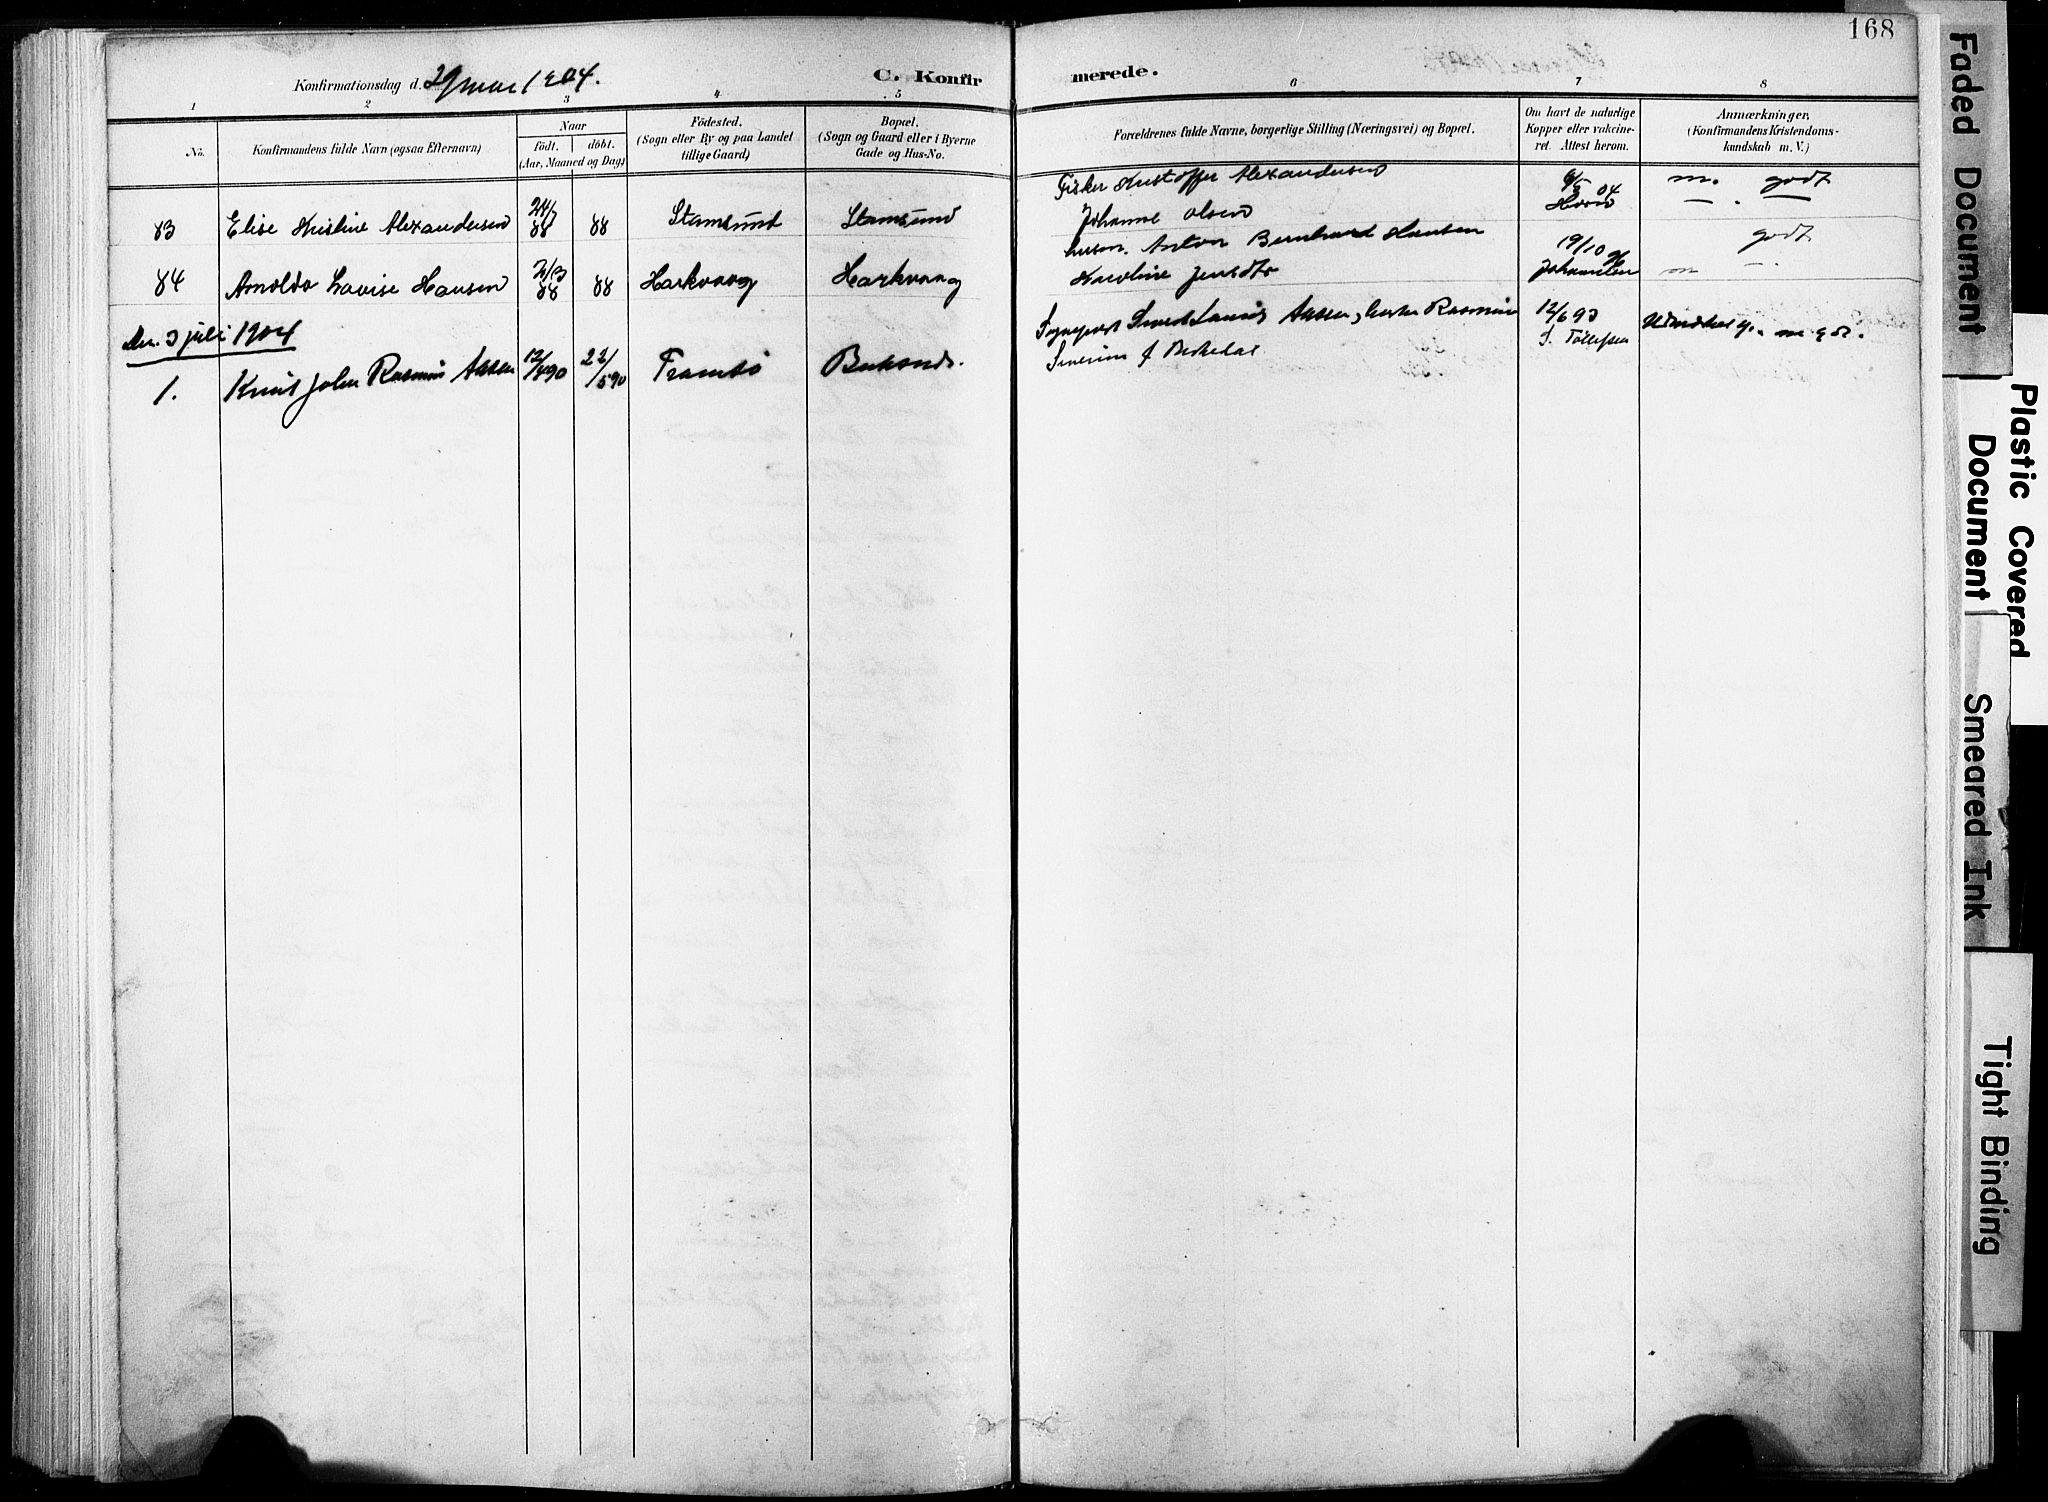 168
Konfirmationsdag d. 29 mai 1904.
C. Konfirmerede.
1 2 3 4 5 6 7 8
No.
Konfirmandens fulde Navn (ogsaa Efternavn)
Naar
födt. döbt.
(Aar, Maaned og Dag)
Födested.
(Sogn eller By og paa Landet
tillige Gaard)
Bopæl.
(Sogn og Gaard eller i Byerne
Gade og Hus-No.
Forældrenes fulde Navne, borgerlige Stilling (Næringsvei) og Bopæl.
Om havt de naturlige
Kopper eller vakcine-
ret. Attest herom.
Anmærkninger,
(Konfirmandens Kristendoms-
kundskab m. V.)
83 Elise Kristine Alexandersen 24/7 88 88 Stamsund Stamsund
Fisker Kristoffer Alexandersen
Johanne Olsen
04
m. godt
84 Arnolda Lovise Hansen 88 88 Harkvaag Harkvaag
Anton Bernhard Hansen
Karoline Jensdtr
19/10
Johannesen
m godt
Den 3 juli 1904
1. Knut John Rasmus Aasen 12/4 90 22/5 90 Tromsö Buksnes.
Sogneprest Laurits Aasen, Rasmine
Severine f
12/6 93
S. Tollefsen
Udmerket g. m g d.
Faded Document
Plastic Covered
Document
Smeared Ink
Tight Binding